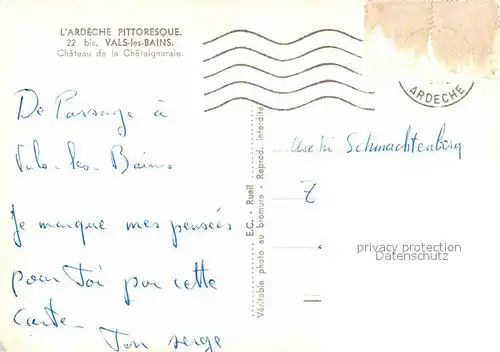 L'ARDÈCHE PITTORESQUE.
22 bis. VALS-les-BAINS.
Château de la Châtaigneraie.
ARDECHE
De Passage à
Vals-les-Bains
Je marque mes pensées
pour Toi par cette
Carte.
Ton serge
E.C. - Rueil
Véritable photo au bromure - Reprod. interdite
Uschi Schmachtenberg
Z
privacy protection
Datenschutz